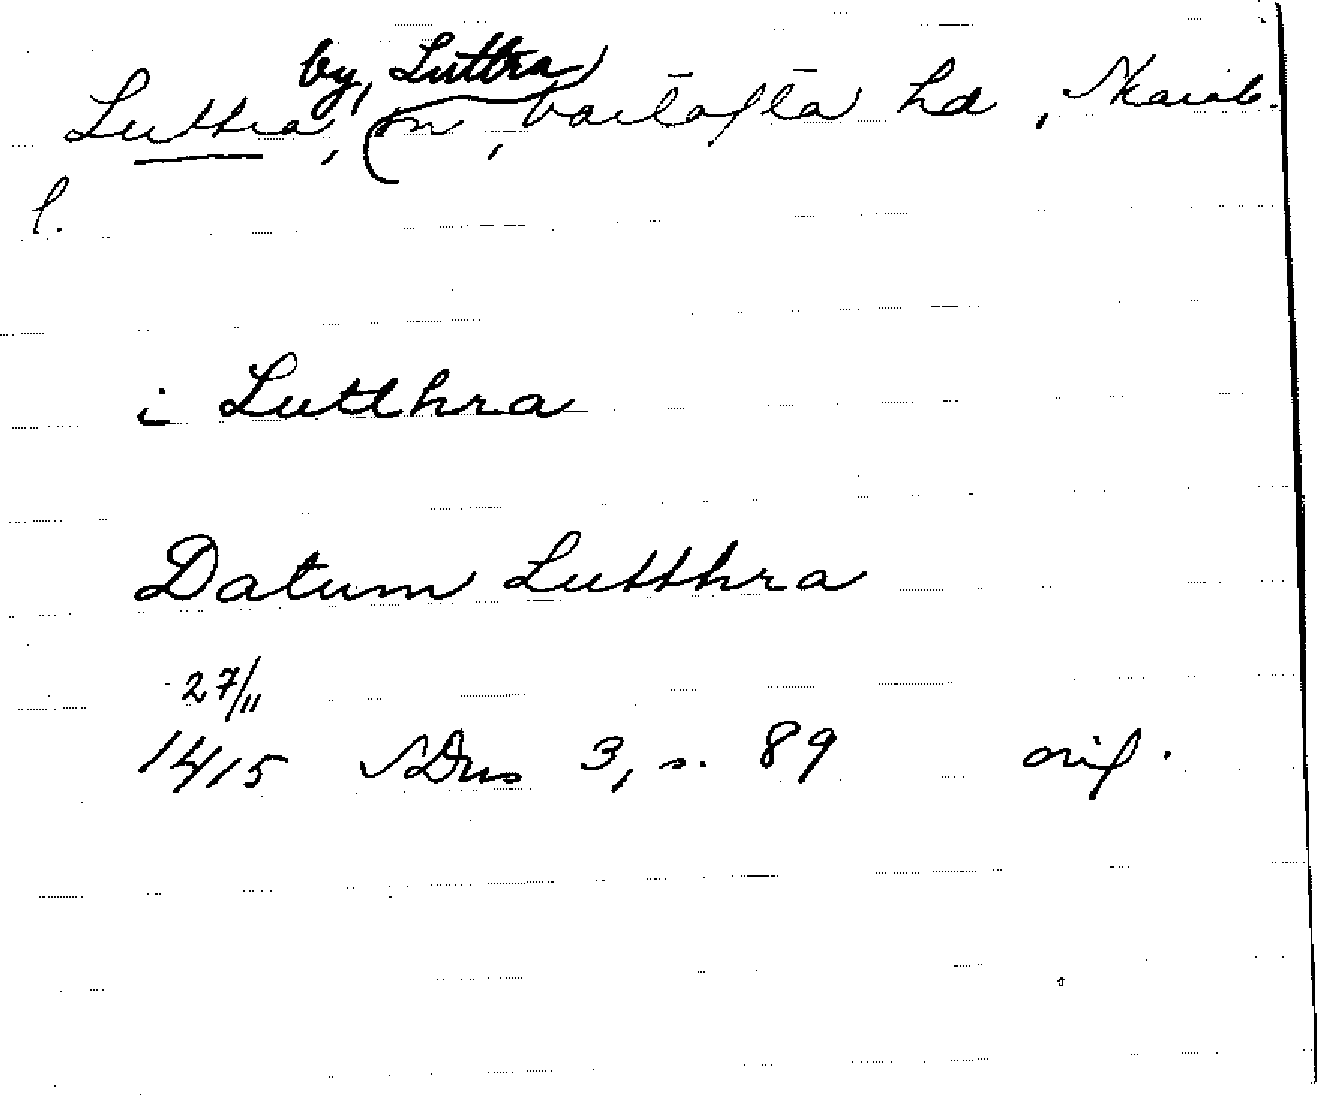 by, Luttra
Luttra, sn, Vartofta hd, Skarab.
l.
i Lutthra
Datum Lutthra
27/11
1415 SDns 3, s. 89 orig.